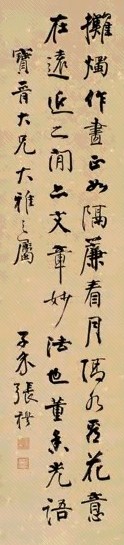 攤燭作畫正如隔簾看月隔水看花意
在遠近之間亦文章妙法也董香光語
寶晉大兄大雅之屬
子和張祥